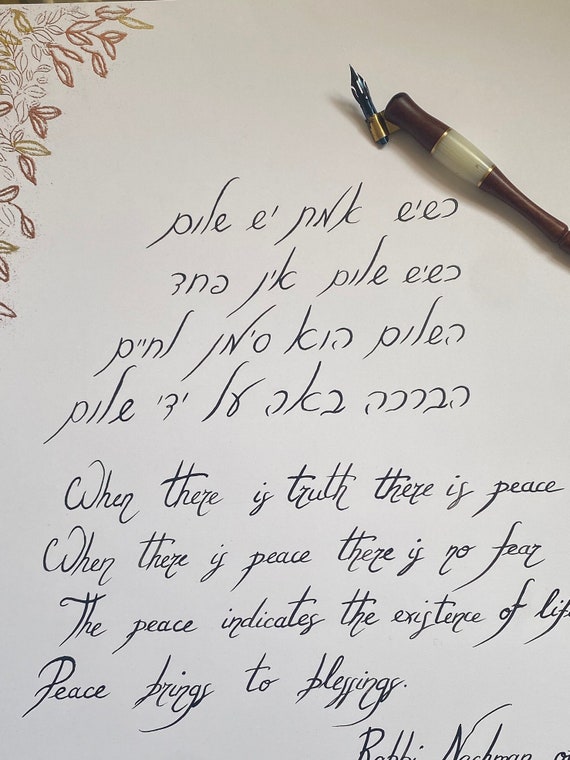 כשיש אמת יש שלום
כשיש שלום אין פחד
השלום הוא סימן לחיים
הברכה באה על ידי שלום
When there is truth there is peace
When there is peace there is no fear
The peace indicates the existence of lif
Peace brings to blessings.
Rabbi Nachman o